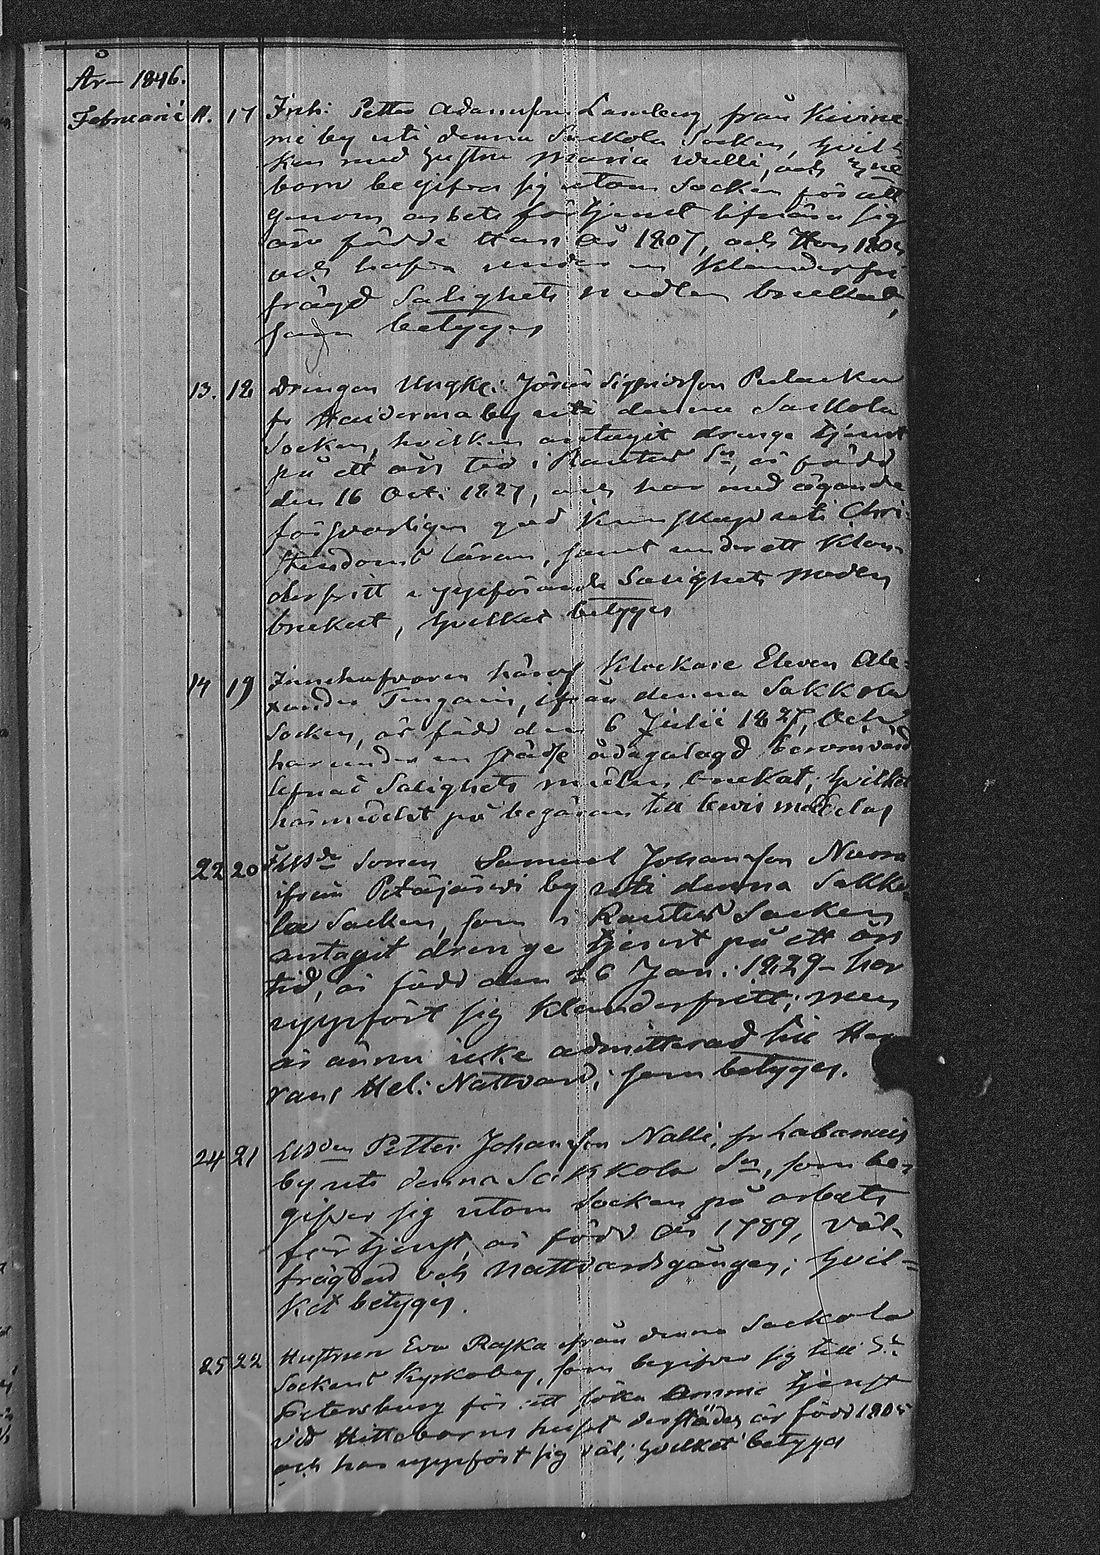 År 1846.
Februarii 11. 17 Inh: Petter Adamsson Lamberg, från Kivine
mi by uti denna Sackola Socken, hvil
ken med hustru Maria Wulli, och
barn begifva sig utom Socken för att
genom arbets förtjenst lifnära sig
äro födde Han År 1807, och Hon
och hafva under en Klanderfri
frägd Salighets medlen bruckat,
som betyges
13. 18 Drengen Ungk: Jöran Sigfridsson
fr by uti denna Sackola
Socken, hvilken antagit drenge tjenst
på ett års tid i Rautus Sn, är född
den 16 Oct: 1827, och har med ägande
försvarligen god Kunskap uti Chri
stendoms läran, samt under ett Klan
derfritt uppförande Salighets medlen
bruckat, hvilket betyges
14 19 Innehafvaren häraf Klockare Eleven Ale=
xander, ifrån denna Sakkola
Socken, är född den 6 Julii 1827, Och
har under en städse ådagalagd berömvärd
lefnad Salighets medlen bruckat; hvilket
härmedelst på begäran till bevis meddelas
22 20 Sonen Samuel Johansson
ifrån Petäjärvi by uti denna Sakko
la Socken, som i Rautus Socken
antagit drenge tjenst på ett års
tid, är född den 26 Jan: 1829 - har
uppfört sig Klanderfritt; men
är ännu icke admitterad till Her
rans Hel: Nattvard; som betyges.
24 21 Petter Johansson Nalli, fr Labanais
by uti denna Sackkola Sn, som be
gifver sig utom Socken på arbets
förtjenst, är född År 1789, väl-
frägdad och Nattvardsgången; hvil=
ket betyges.
25 22 Hustrun Eva Rapka ifrån denna Sackola
Sockens Kyrkoby, som begifver sig till St.
Petersburg för att söka Amme tjenst
vid Hittebarns huset derstädes är född 1805
och har uppfört sig väl; hvilket betyges